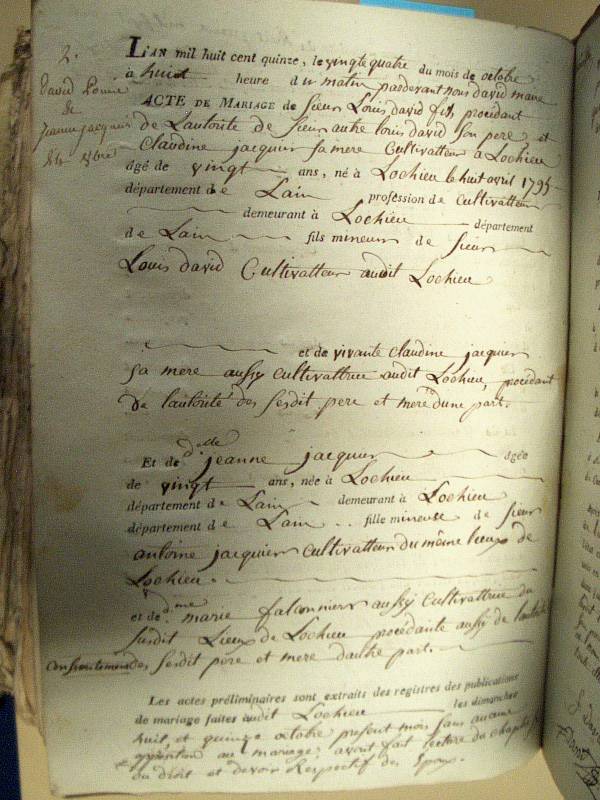 2.
David Louis
&
Jeanne jacquier
L'AN mil huit cent quinze, le vingt quatre du mois de octobre
à huit heure du matin pardevant nous david maire
ACTE DE MARIAGE de Sieur Louis david fils procedant
de Lautorité de Sieur autre louis david Son pere et
Claudine jacquier sa mere Cultivatteur a Lochieu
âgé de vingt ans, né à Lochieu le huit avril 1795
département de Lain profession de Cultivatteur
demeurant à Lochieu département
de Lain fils mineur de Sieur
Louis david Cultivatteur audit Lochieu
et de vivante Claudine jacquier
sa mere aussy Cultivattrice audit Lochieu, procédant
de lautorité des sesdit pere et mere dune part.
Et de dlle jeanne jacquier âgée
de vingt ans, née à Lochieu
département de Lain demeurant à Lochieu
département de Lain fille mineure de Sieur
antoine jacquier Cultivatteur du même lieux de
Lochieu.
et de dme marie falconnier aussy Cultivattrice du
susdit Lieux de Lochieu procédante aussy de lautorité
Consentement des sesdit pere et mere dautre part.
Les actes préliminaires sont extraits des registres des publications
de mariage faites audit Lochieu les dimanches
huit et quinze octobre present mois sans aucune
opposition au mariage; avont fait lecture du chapitre
du droit et devoir Respectif des Epoux.